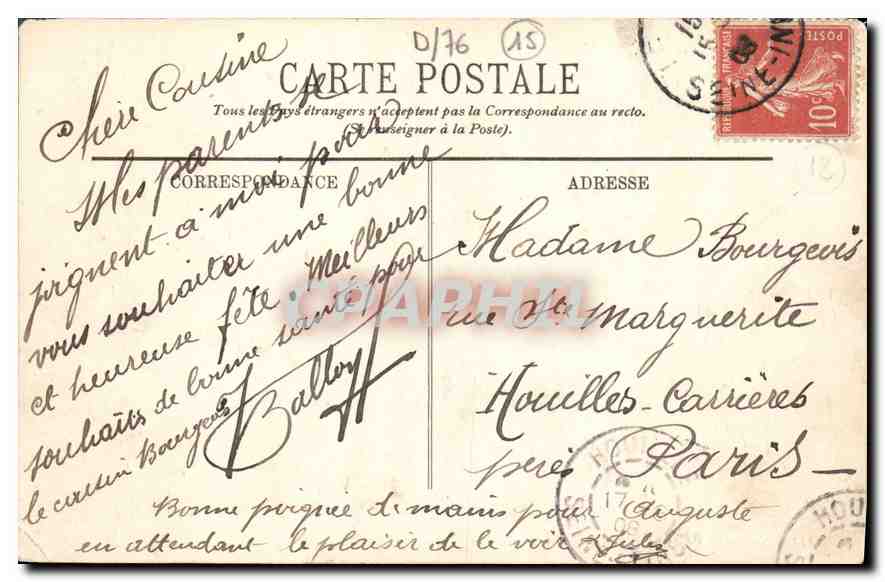 D/76 15
CARTE POSTALE
Tous les Pays étrangers n'acceptent pas la Correspondance au recto.
(Se renseigner à la Poste).
CORRESPONDANCE
ADRESSE
POSTES
REPUBLIQUE FRANÇAISE
10c
SEINE-IN
12
Chère Cousine
Mes parents se
joignent à moi pour
vous souhaiter une bonne
et heureuse fête. Meilleurs
souhaits de bonne santé pour
le cousin Bourgeois
Balloy
Bonne poignée de mains pour Auguste
en attendant le plaisir de le voir Jules
Madame Bourgeois
rue Ste Marguerite
Houilles-Carrières
près Paris
CPAPHIL
HOUILLES
17
06
HOU